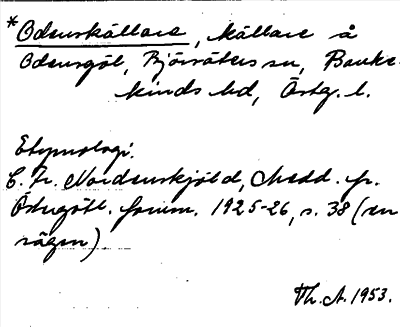 *Odenskällare, källare å
Odensgöl, Björsäters sn, Bankekinds hd, Östg. l.
Etymologi.
C. Fr. Nordenskjöld, Medd. fr.
Östergötl. fornm. 1925-26, s. 38 (en
sägen)
Th. A. 1953.